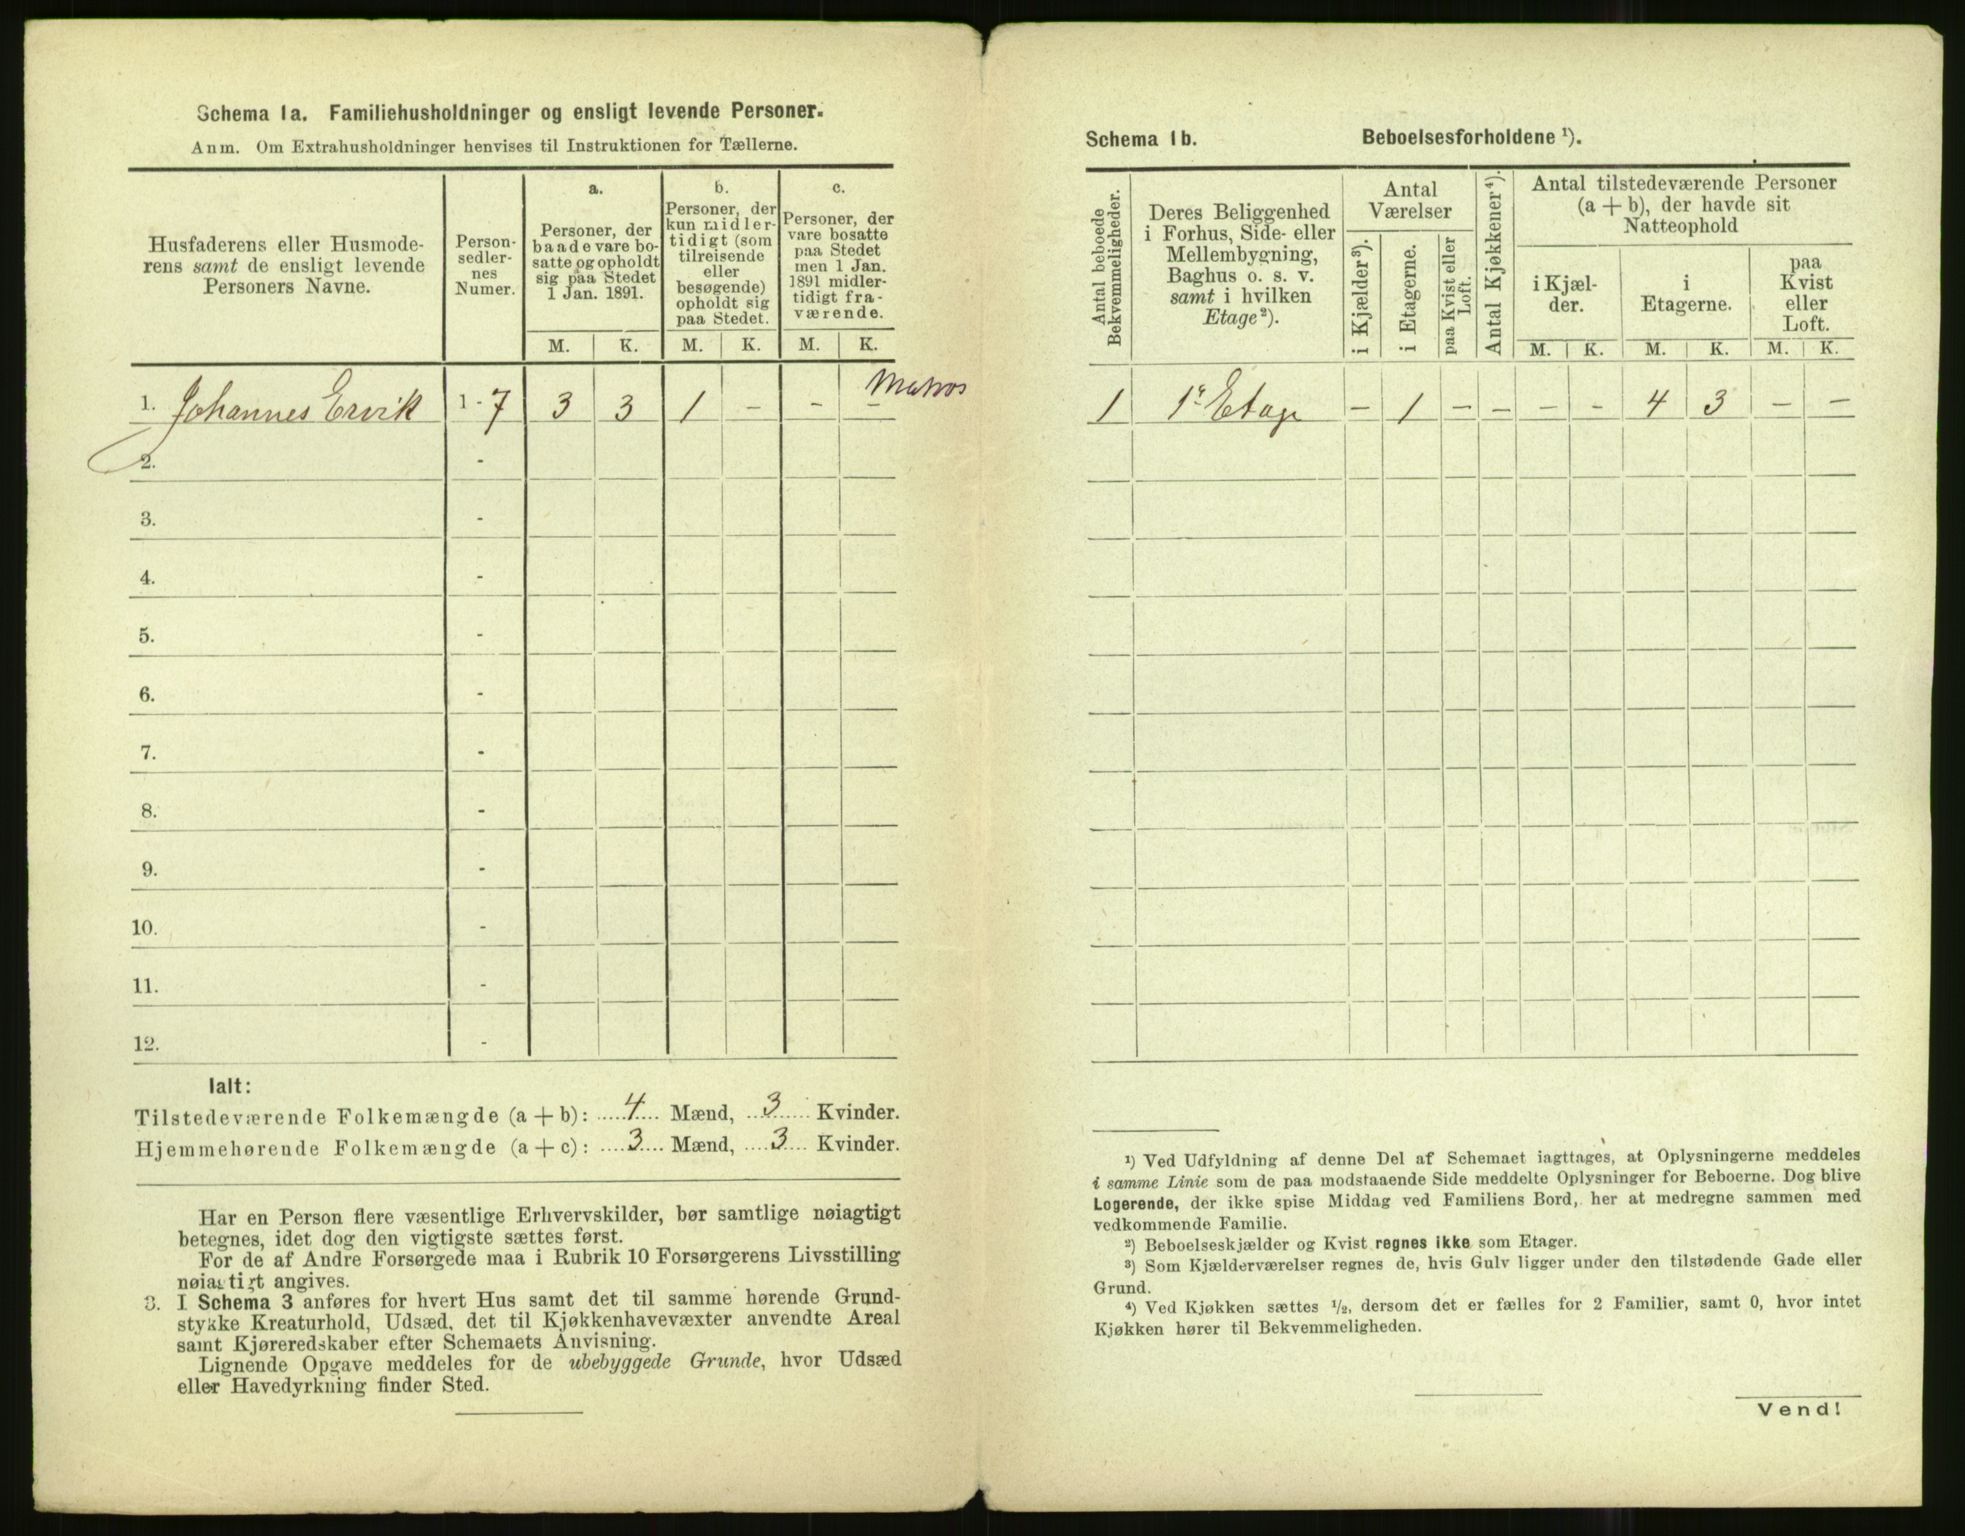 Schema 1a. Familiehusholdninger og ensligt levende Personer.
Anm. Om Extrahusholdninger henvises til Instruktionen for Tællerne.
Husfaderens eller Husmode-
rens samt de ensligt levende
Personers Navne.
Person-
sedler-
nes
Numer.
a.
Personer, der
baade vare bo-
satte og opholdt
sig paa Stedet
1 Jan. 1891.
b.
Personer, der
kun midler-
tidigt (som
tilreisende
eller
besøgende)
opholdt sig
paa Stedet.
c.
Personer, der
vare bosatte
paa Stedet
men 1 Jan.
1891 midler-
tidigt fra-
værende.
M. K. M. K. M. K.
Matros
1. Johannes Ervik 1 - 7 3 3 1 - - -
2. -
3. -
4. -
5. -
6. -
7. -
8. -
9. -
10. -
11. -
12. -
Ialt:
Tilstedeværende Folkemængde (a + b): 4 Mænd, 3 Kvinder.
Hjemmehørende Folkemængde (a + c): 3 Mænd, 3 Kvinder.
Har en Person flere væsentlige Erhvervskilder, bør samtlige nøiagtigt
betegnes, idet dog den vigtigste sættes først.
For de af Andre Forsørgede maa i Rubrik 10 Forsørgerens Livsstilling
nøiagtigt angives.
3. I Schema 3 anføres for hvert Hus samt det til samme hørende Grund-
stykke Kreaturhold, Udsæd, det til Kjøkkenhavevæxter anvendte Areal
samt Kjøreredskaber efter Schemaets Anvisning.
Lignende Opgave meddeles for de ubebyggede Grunde, hvor Udsæd
eller Havedyrkning finder Sted.
Schema 1b. Beboelsesforholdene ¹).
Antal beboede
Bekvemmeligheder.
Deres Beliggenhed
i Forhus, Side- eller
Mellembygning,
Baghus o. s. v.
samt i hvilken
Etage²).
Antal
Værelser
i Kjælder³).
i Etagerne.
paa Kvist eller
Loft.
Antal Kjøkkener⁴).
Antal tilstedeværende Personer
(a + b), der havde sit
Natteophold
i Kjæl-
der.
i
Etagerne.
paa
Kvist
eller
Loft.
M. K. M. K. M. K.
1 1ᵉ Etage - 1 - - - - 4 3 - -
¹) Ved Udfyldning af denne Del af Schemaet iagttages, at Oplysningerne meddeles
i samme Linie som de paa modstaaende Side meddelte Oplysninger for Beboerne. Dog blive
Logerende, der ikke spise Middag ved Familiens Bord, her at medregne sammen med
vedkommende Familie.
²) Beboelseskjælder og Kvist regnes ikke som Etager.
³) Som Kjælderværelser regnes de, hvis Gulv ligger under den tilstødende Gade eller
Grund.
⁴) Ved Kjøkken sættes ½, dersom det er fælles for 2 Familier, samt 0, hvor intet
Kjøkken hører til Bekvemmeligheden.
Vend!